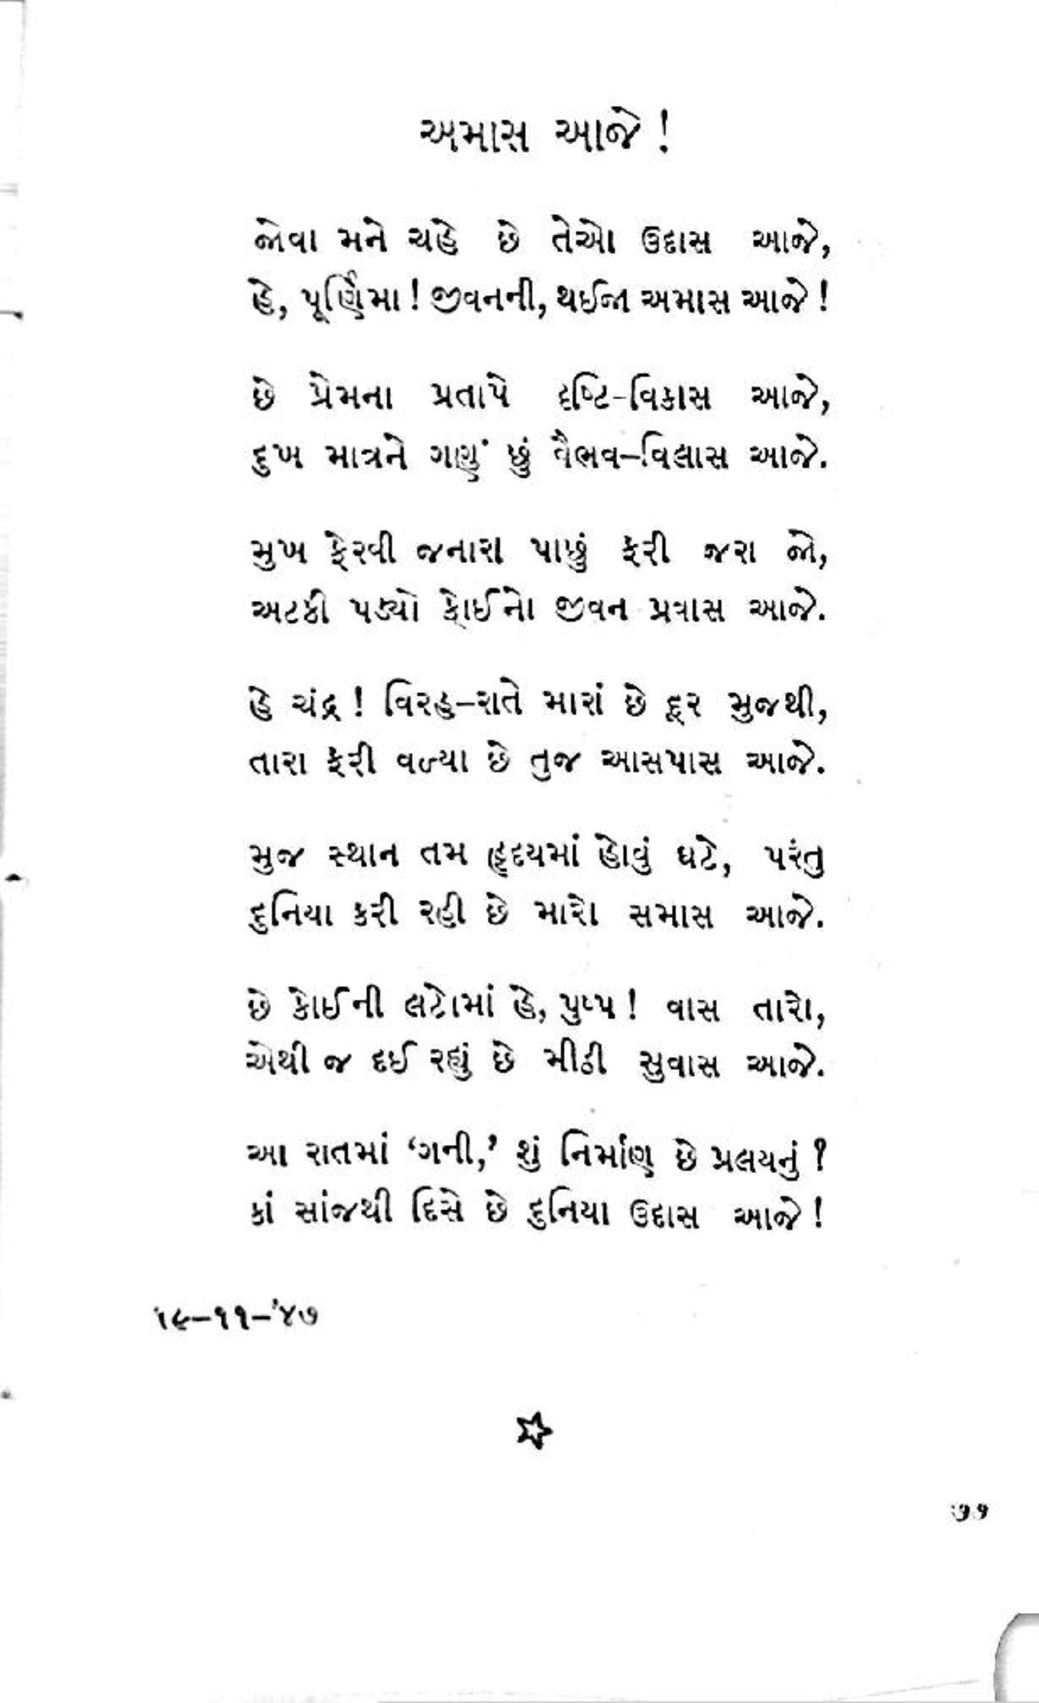 અમાસ આજે !
જોવા મને ચહે છે તેઓ ઉદાસ આજે,
હે, પૂર્ણિમા ! જીવનની, થઈજા અમાસ આજે !
છે પ્રેમના પ્રતાપે દૃષ્ટિ-વિકાસ આજે,
દુખ માત્રને ગણું છું વૈભવ–વિલાસ આજે.
મુખ ફેરવી જનારા પાછું ફરી જરા જો,
અટકી પડ્યો કોઈનો જીવન પ્રવાસ આજે.
હે ચંદ્ર ! વિરહ–રાતે મારાં છે દૂર મુજથી,
તારા ફરી વળ્યા છે તુજ આસપાસ આજે.
મુજ સ્થાન તમ હૃદયમાં હોવું ઘટે, પરંતુ
દુનિયા કરી રહી છે મારો સમાસ આજે.
છે કોઈની લટોમાં હે, પુષ્પ ! વાસ તારો,
એથી જ દઈ રહ્યું છે મીઠી સુવાસ આજે.
આ રાતમાં ‘ગની,’ શું નિર્માણ છે પ્રલયનું ?
કાં સાંજથી દિસે છે દુનિયા ઉદાસ આજે !
૧૯–૧૧–’૪૭
૭૧